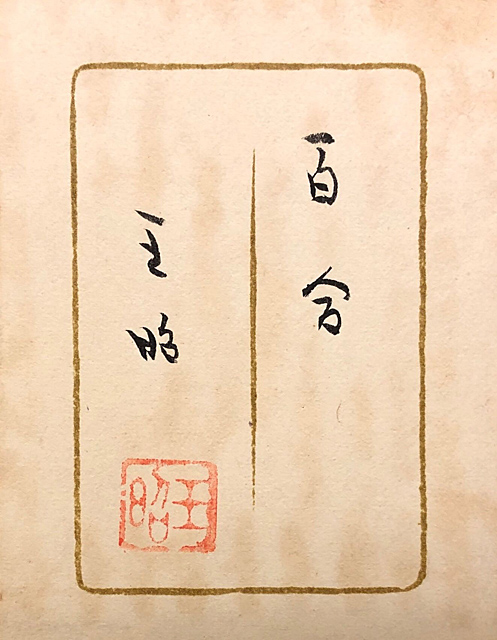 百合
王昭
王昭